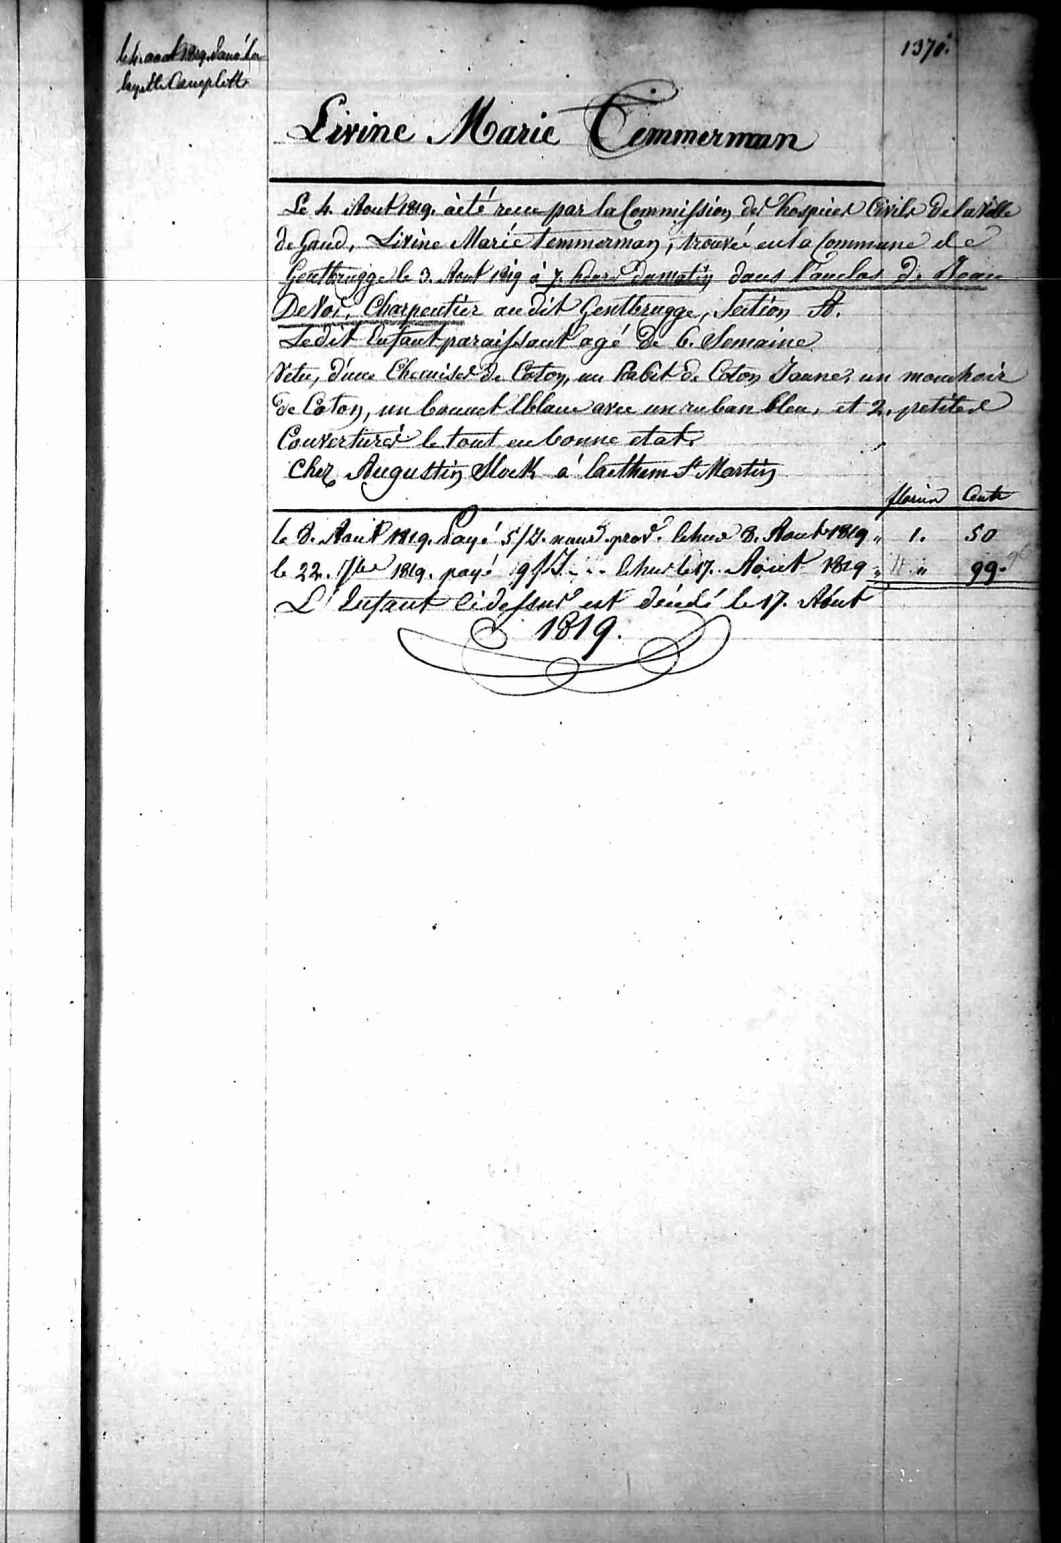 le 4. aout 1819. donné la
layette Complette
1370.
Livine Marie Temmerman
Le 4. Aout 1819. à été recue par la Commission des hospices Civils de la Ville
de Gand, Livine Marie Temmerman, trouvée en la Commune de
Gentbrugge le 3. Aout 1819 à 7. heures du matin dans l'enclos de Jean
De Vos, Charpentier au dit Gentbrugge, Section A.
Le dit Enfant paraissant agé de 6. Semaine
Vetu, d'une Chemise de Coton, un habit de Coton Jaune, un mouchoir
de Coton, un bonnet blanc avec un ruban bleu, et 2. petites
Couvertures le tout en bonne etat.
Chez Augustin Slock à Laethem St Martin
florins Cents
le 8. Aout 1819. Payé 5/J. nour. prov. échus 8. Aout 1819 " 1. 50
le 22. 7bre 1819. payé 9/J. - - échus le 17. Aout 1819 " " 99.
L'Enfant cidessus est décédé le 17. Aout
1819.